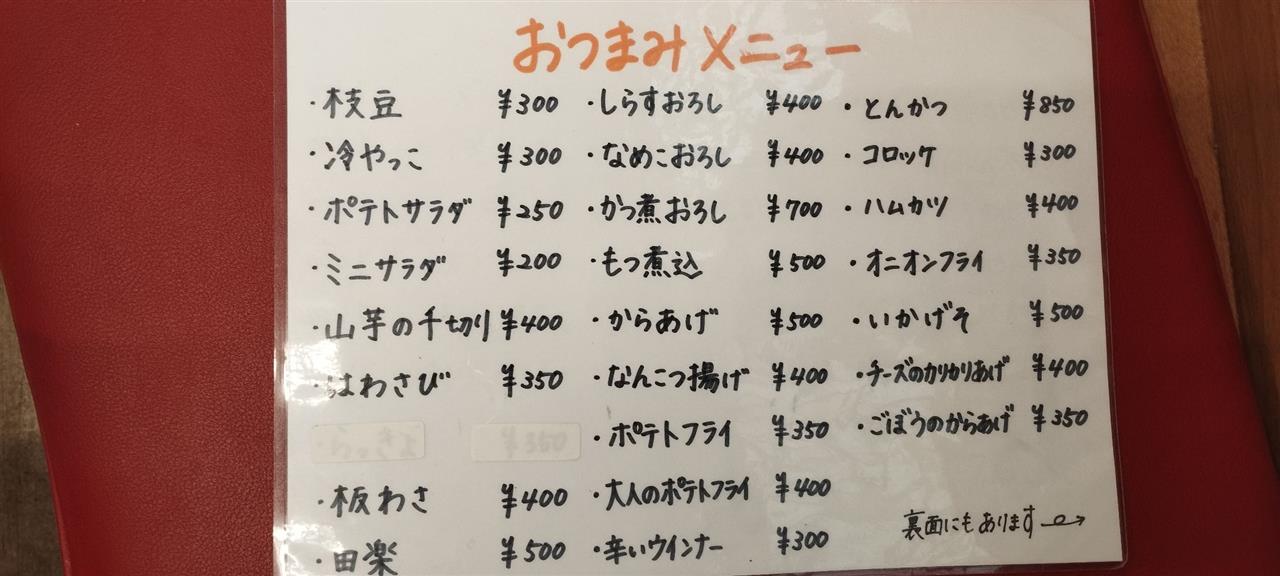 おつまみメニュー
・枝豆 ¥300
・冷やっこ ¥300
・ポテトサラダ ¥250
・ミニサラダ ¥200
・山芋の千切り ¥400
・はわさび ¥350
・らっきょ ¥350
・板わさ ¥400
・田楽 ¥500
・しらすおろし ¥400
・なめこおろし ¥400
・かつ煮おろし ¥700
・もつ煮込 ¥500
・からあげ ¥500
・なんこつ揚げ ¥400
・ポテトフライ ¥350
・大人のポテトフライ ¥400
・辛いウインナー ¥300
・とんかつ ¥850
・コロッケ ¥300
・ハムカツ ¥400
・オニオンフライ ¥350
・いかげそ ¥500
・チーズのカリカリあげ ¥400
・ごぼうのからあげ ¥350
裏面にもあります→